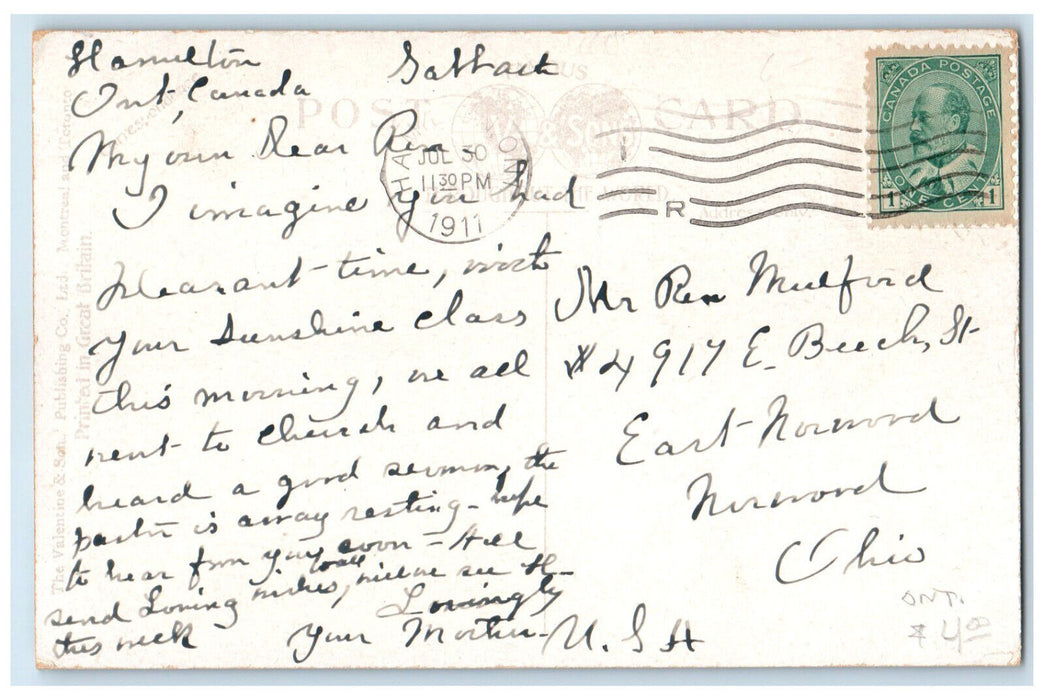 Hamilton
Ont, Canada
Sabbath
My own Dear Ren
I imagine you had
pleasant time, with
your Sunshine Class
this morning, we all
went to Church and
heard a good sermon, the
pastor is away resting - hope
to hear from you soon - All
send Loving wishes, to all will we see H-
this week
Lovingly
your Mother -
POST CARD
& Sons
JUL 30
11 30 PM
1911
R
CANADA POSTAGE
ONE CENT
1 1
Mr Ren Mulford
# 4917 E. Beech, St
East Norwood
Norwood
Ohio
U. S A
ONT.
$ 4.00
The Valentine & Sons' Publishing Co., Ltd. Montreal and Toronto
Printed in Great Britain.